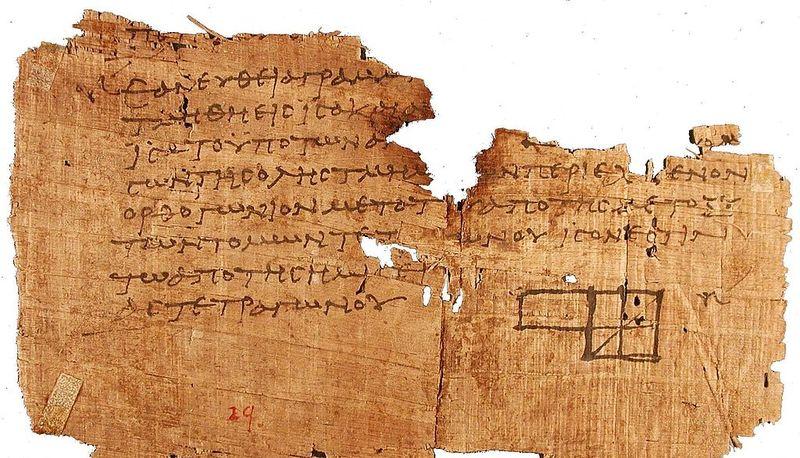 ΕΑΝΕΥΘΕΙΑΓΡΑΜ
ΤΜΗΘΗΕΙϹΙϹΑΚΑΙΑ
ΙϹΑΤΟΥΠΟΤΩΝΑ
ϹΩΝΤΗϹΟΛΗϹΤΜΗΜ ΩΝΠΕΡΙΕΧ ΕΝΟΝ
ΟΡΘΟΓΩΝΙΟΝΜΕΤΑΤ ΑΠΟΤΗϹΜΕΤΟΞΥ
ΤΩΝΤΟΜΩΝΤΕΤ ΩΝΟΥΙϹΟΝΕϹΤΙΝ
ΤΩΑΠΟΤΗϹΗΜΙ
ΑϹΤΕΤΡΑΓΩΝΟΥ
29.